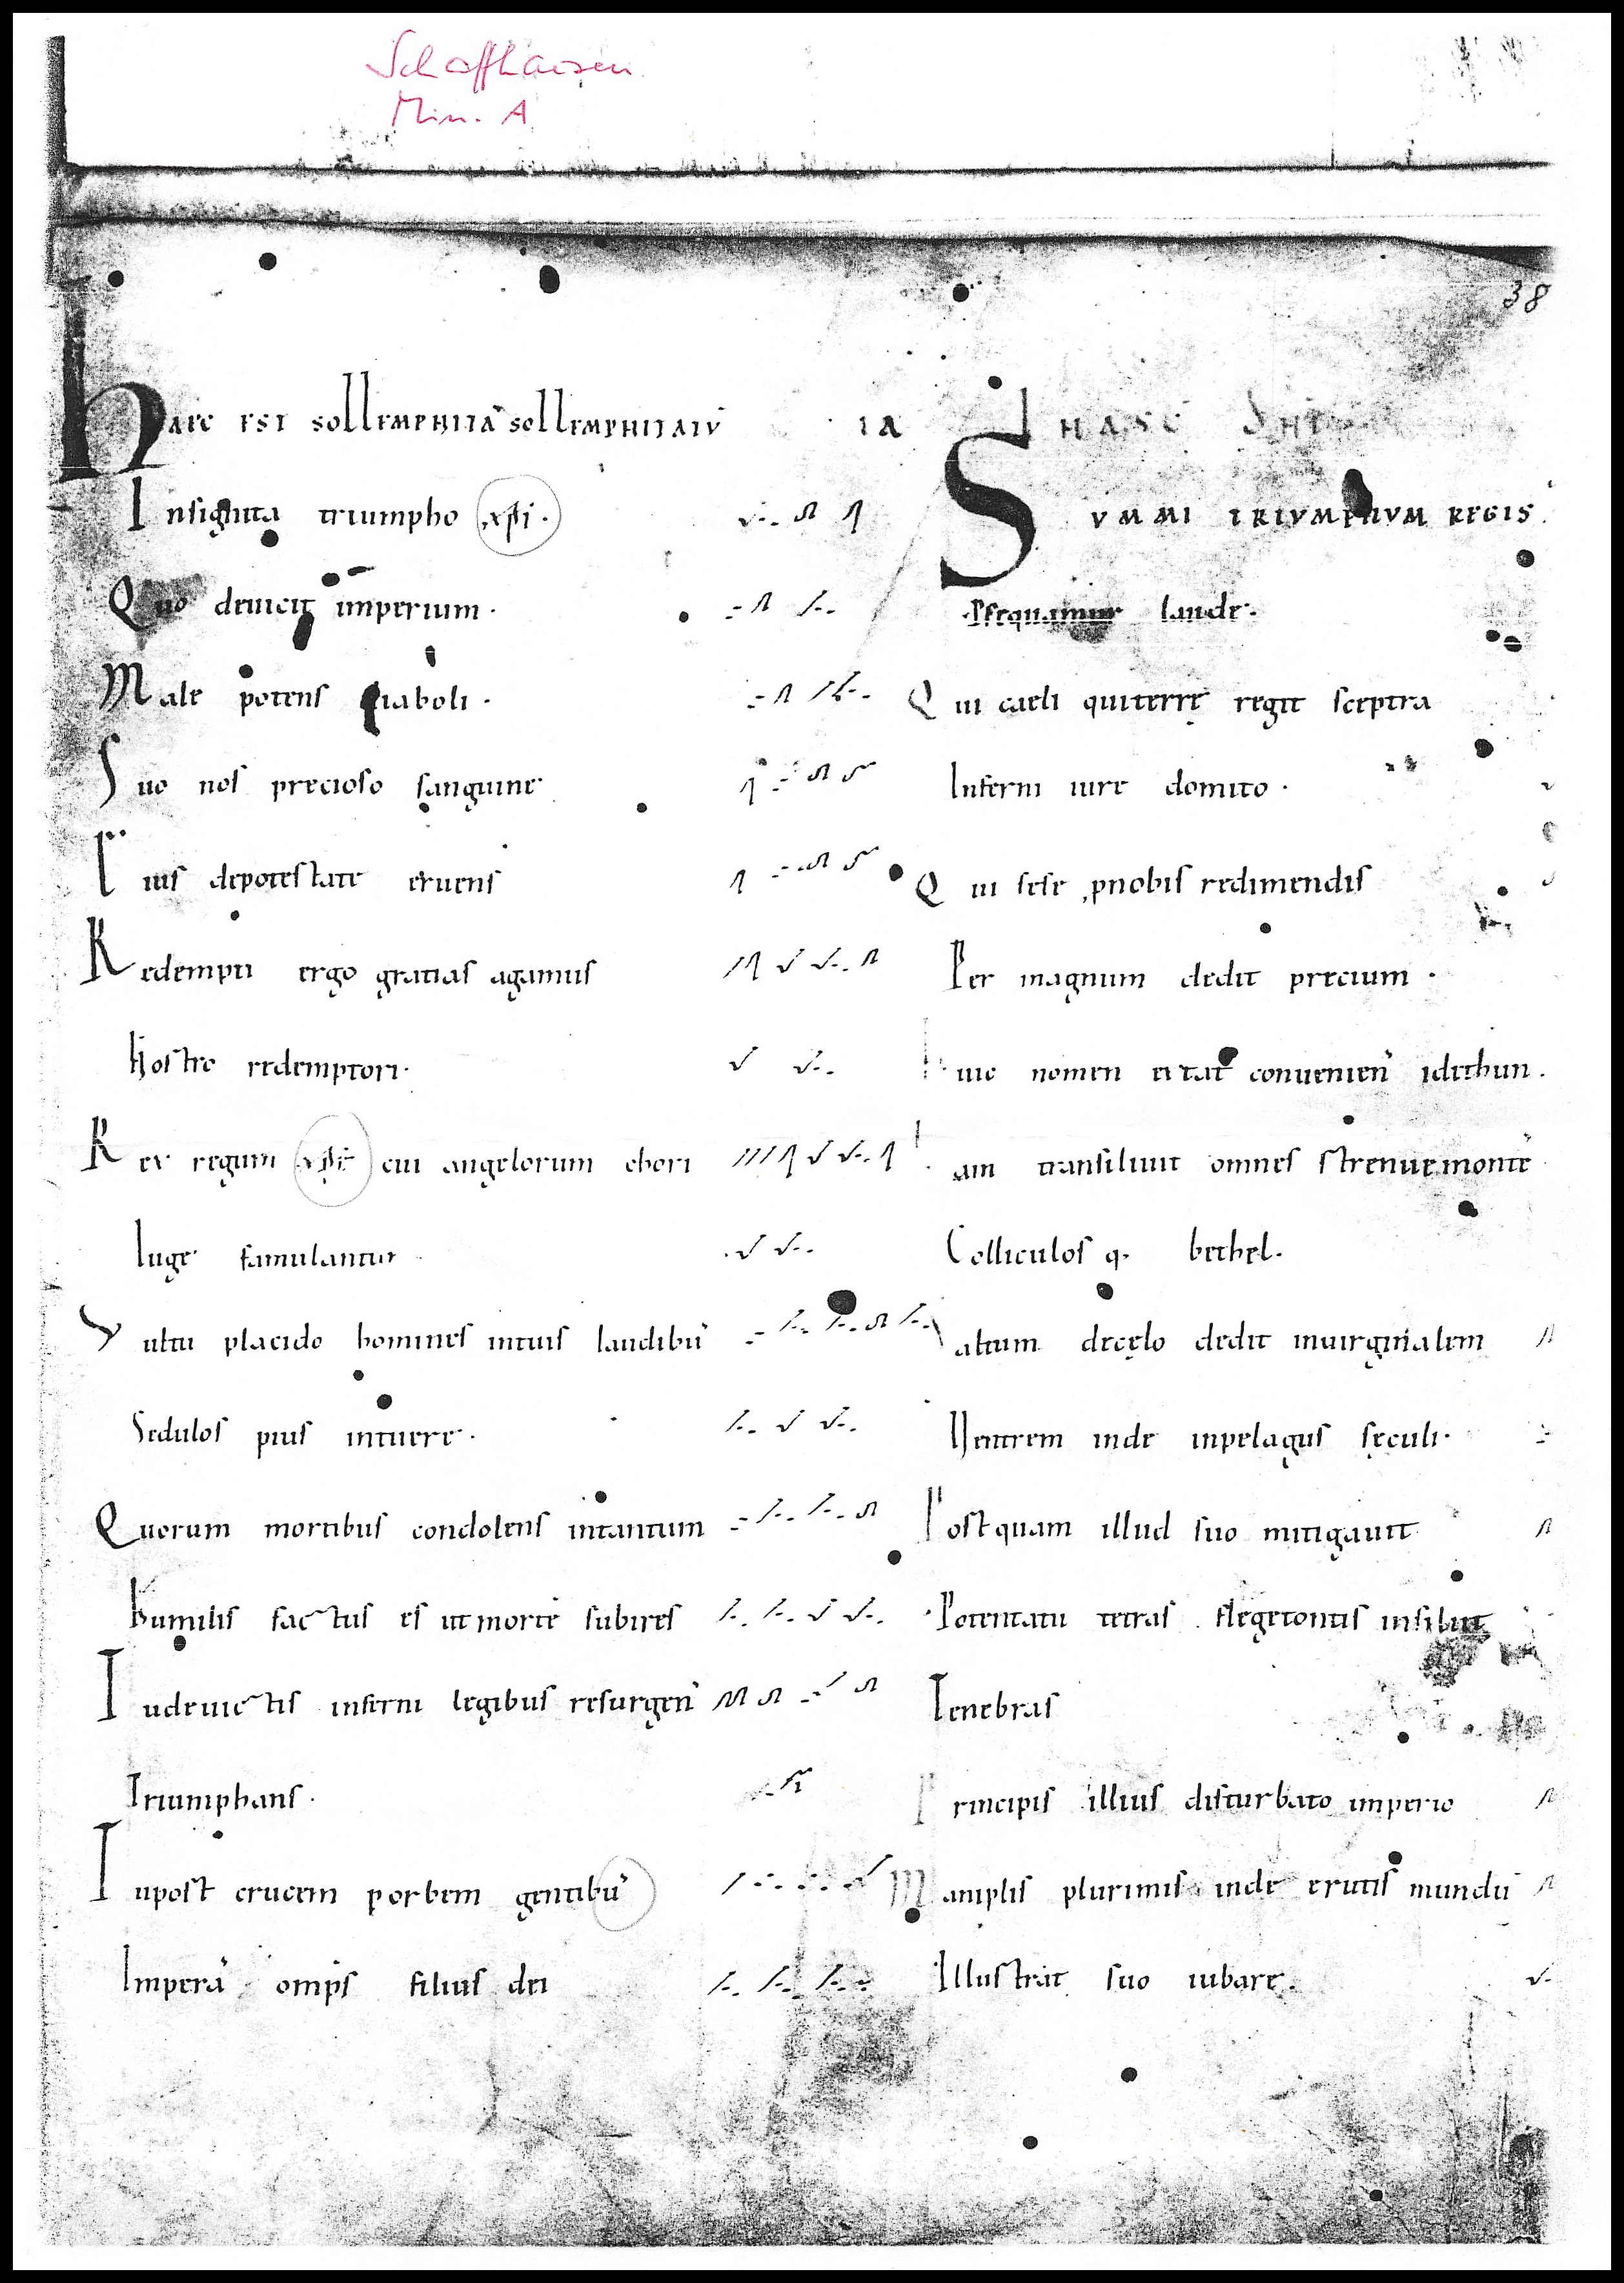 Schaffhausen
Min. A
38
Haec est sollempnitā sollempnitatū
Insignita triumpho xp̄i.
Quo deuicit imperium.
Male potens diaboli.
Suo nos precioso sanguine
Cuius depotestate eruens
Redempti ergo gratias agamus
Nostro redemptori.
Rex regum xp̄e cui angelorum chori
Iuge famulantur.
Vultu placido homines intuis laudibū
Sedulos pius intuere.
Quorum mortibus condolens intantum
humilis factus es ut mortē subires
Tu deuictis inferni legibus resurgen̄
Triumphans.
Tu post crucem ꝑ orbem gentibū
Imperā omp̄s filius dei
IN ASC
SVMMI TRIVMPHVM REGIS
Psequamur laude.
Qui caeli qui terrę regit sceptra
Inferni iure domito.
Qui sese pro nobis redimendis
Per magnum dedit precium.
huic nomen extat conuenien̄ idithun.
Iam transiliuit omnes strenue montē
Colliculos q. bethel.
Saltum de cęlo dedit in uirginalem
Uentrem inde in pelagus sęculi.
Post quam illud suo mitigauit
Potentatu tetras flegetontis insiliuit
Tenebras
Principis illius disturbato imperio
Maniplis plurimis inde erutis mundū
Illustrat suo iubare.